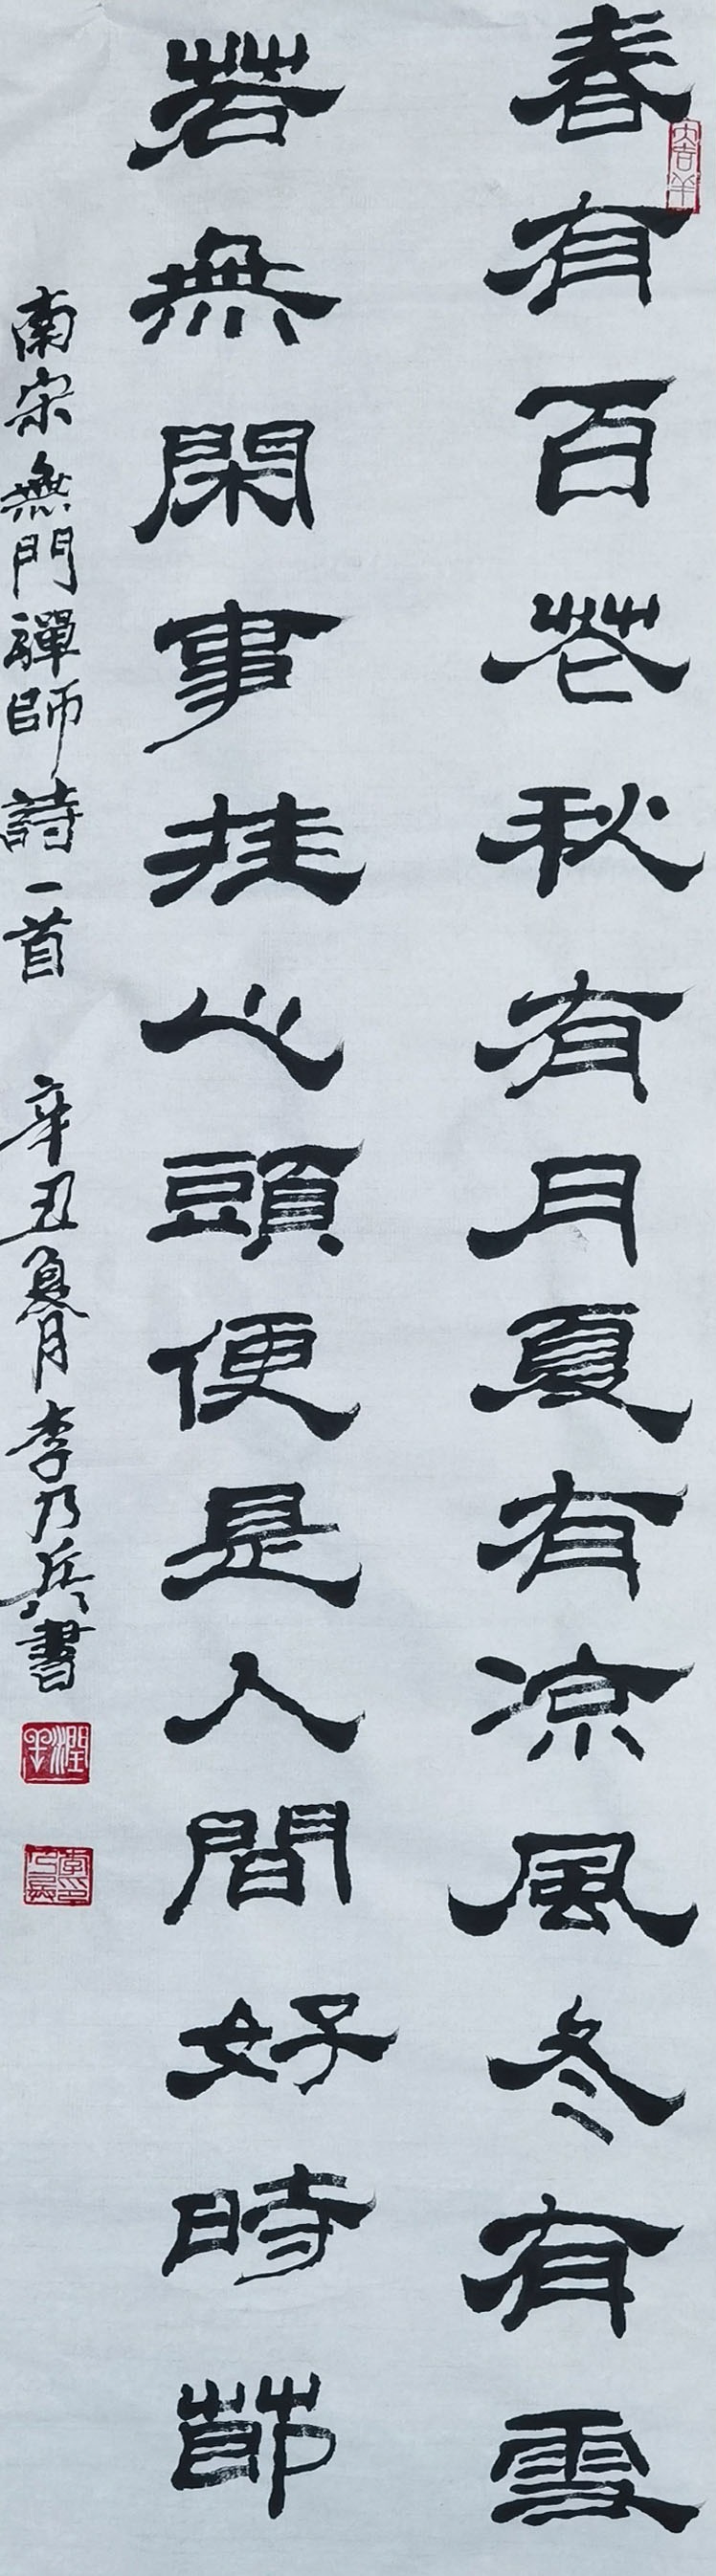 春有百花秋有月夏有凉風冬有雪
若無閑事挂心頭便是人間好時節
南宋無門禪師詩一首 辛丑夏月李乃兵書
大吉羊